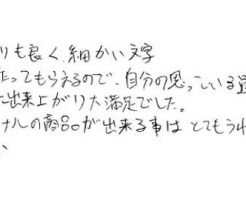 りも良く、細かい文字
たってもらえるので、自分の思っている
に出来上がり大満足でした。
ナルの商品が出来る事は とてもう